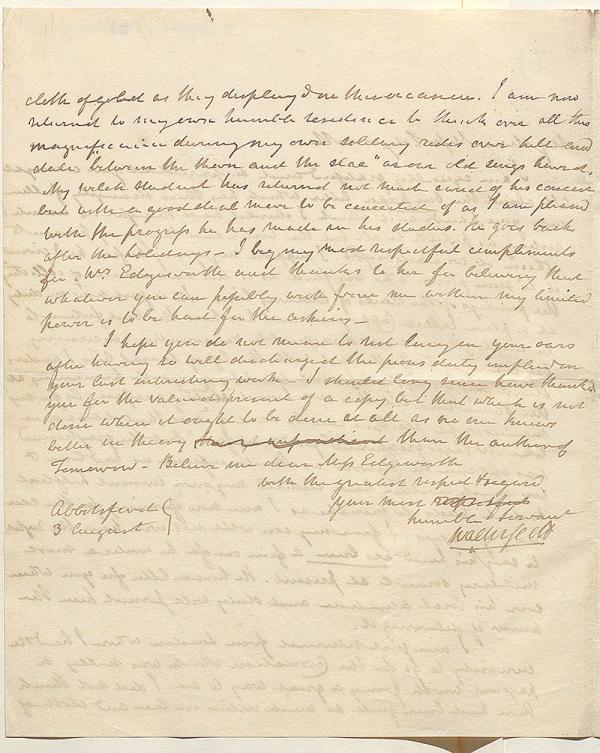 cloth of gold as they displayd on this occasion. I am now
returnd to my own humble residence to think over all this
magnificence during my own solitary rides over hill and
dale "between the thorn and the slae" as our old songs have it.
My Welch student has returnd not much cured of his conceit
but with a good deal more to be conceited of as I am pleasd
with the progress he has made in his studies. He goes back
after the holidays - I beg my most respectful compliments
for Mrs Edgeworth and thanks to her for believing that
whatever you can possibly wish from me within my limited
power is to be had for the asking -
I hope you do not mean to rest long on your oars
after having so well discharged the pious duty implied in
your last interesting work - I should long since have thankd
you for the valued present of a copy but that which is not
done when it ought to be done at all as no one knows
better in theory than the author of
Tomorrow - Believe me dear Miss Edgeworth
with the greatest respect & regard
your most respectful
humble Servant
Walter Scott
Abbotsford
3 August